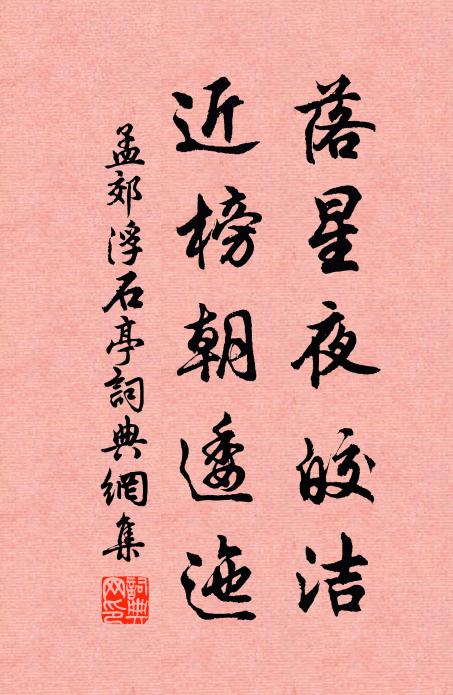 落星夜皎洁
近榜朝逶迤
孟郊浮石亭詞典網集
詞典网印